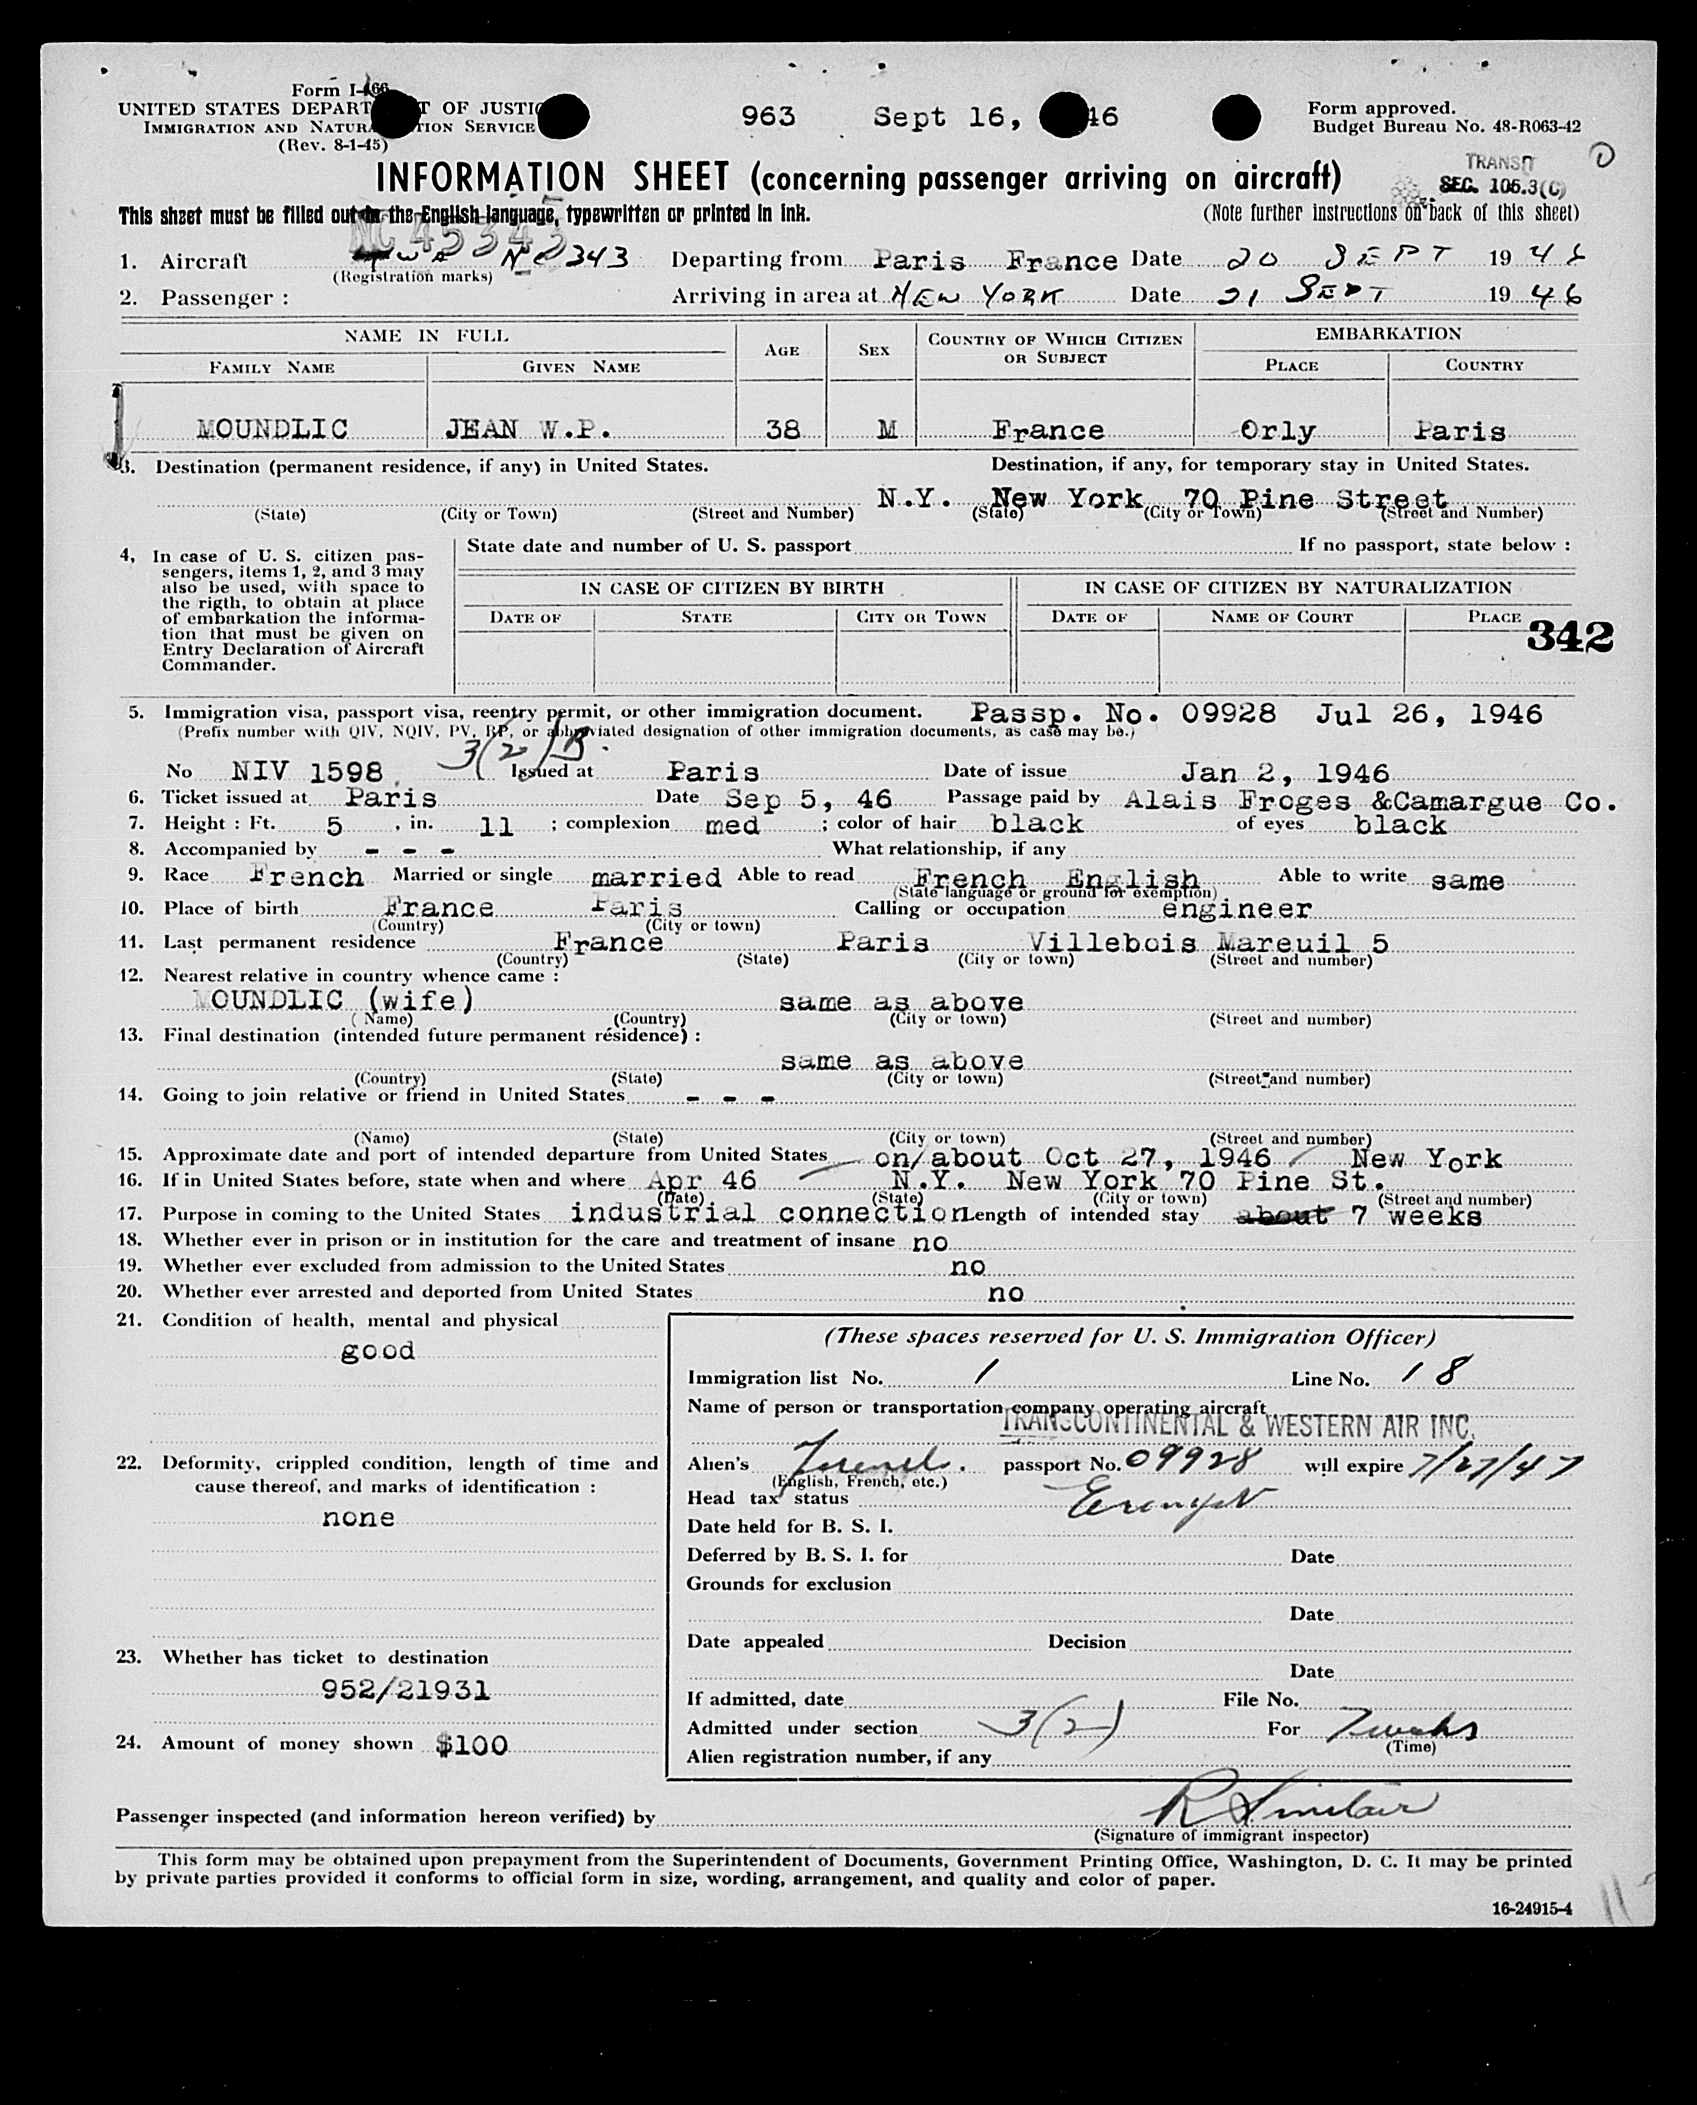 Form I-466
UNITED STATES DEPARTMENT OF JUSTICE
IMMIGRATION AND NATURALIZATION SERVICE
(Rev. 8-1-45)
963 Sept 16, 46
Form approved.
Budget Bureau No. 48-R063-42
TRANSIT
SEC. 105.3(C)
INFORMATION SHEET (concerning passenger arriving on aircraft)
This sheet must be filled out in the English language, typewritten or printed in ink.
(Note further instructions on back of this sheet)
NC 45343
1. Aircraft TWA NC 343 Departing from Paris France Date 20 SEPT 19 46
(Registration marks)
2. Passenger : Arriving in area at NEW YORK Date 21 SEPT 19 46
NAME IN FULL AGE SEX COUNTRY OF WHICH CITIZEN OR SUBJECT EMBARKATION
FAMILY NAME GIVEN NAME PLACE COUNTRY
MOUNDLIC JEAN W.P. 38 M France Orly Paris
3. Destination (permanent residence, if any) in United States. Destination, if any, for temporary stay in United States.
N.Y. New York 70 Pine Street
(State) (City or Town) (Street and Number) (State) (City or Town) (Street and Number)
4, In case of U. S. citizen pas-
sengers, items 1, 2, and 3 may
also be used, with space to
the rigth, to obtain at place
of embarkation the informa-
tion that must be given on
Entry Declaration of Aircraft
Commander.
State date and number of U. S. passport If no passport, state below :
IN CASE OF CITIZEN BY BIRTH IN CASE OF CITIZEN BY NATURALIZATION
DATE OF STATE CITY OR TOWN DATE OF NAME OF COURT PLACE
342
5. Immigration visa, passport visa, reentry permit, or other immigration document. Passp. No. 09928 Jul 26, 1946
(Prefix number with QIV, NQIV, PV, RP, or abbreviated designation of other immigration documents, as case may be.)
3(2) B.
No NIV 1598 Issued at Paris Date of issue Jan 2, 1946
6. Ticket issued at Paris Date Sep 5, 46 Passage paid by Alais Froges &Camargue Co.
7. Height : Ft. 5 , in. 11 ; complexion med ; color of hair black of eyes black
8. Accompanied by - - - What relationship, if any
9. Race French Married or single married Able to read French English Able to write same
(State language or ground for exemption)
10. Place of birth France Paris Calling or occupation engineer
(Country) (City or town)
11. Last permanent residence France Paris Villebois Mareuil 5
(Country) (State) (City or town) (Street and number)
12. Nearest relative in country whence came :
MOUNDLIC (wife) same as above
(Name) (Country) (City or town) (Street and number)
13. Final destination (intended future permanent résidence) :
same as above
(Country) (State) (City or town) (Street and number)
14. Going to join relative or friend in United States - - -
(Name) (State) (City or town) (Street and number)
15. Approximate date and port of intended departure from United States on/about Oct 27, 1946 / New York
16. If in United States before, state when and where Apr 46 N.Y. New York 70 Pine St.
(Date) (State) (City or town) (Street and number)
17. Purpose in coming to the United States industrial connection Length of intended stay about 7 weeks
18. Whether ever in prison or in institution for the care and treatment of insane no
19. Whether ever excluded from admission to the United States no
20. Whether ever arrested and deported from United States no
21. Condition of health, mental and physical
good
22. Deformity, crippled condition, length of time and
cause thereof, and marks of identification :
none
23. Whether has ticket to destination
952/21931
24. Amount of money shown $100
(These spaces reserved for U. S. Immigration Officer)
Immigration list No. 1 Line No. 18
Name of person or transportation company operating aircraft
TRANSCONTINENTAL & WESTERN AIR INC.
Alien's French. passport No. 09928 will expire 7/27/47
(English, French, etc.)
Head tax status Exempt
Date held for B. S. I.
Deferred by B. S. I. for Date
Grounds for exclusion
Date
Date appealed Decision
Date
If admitted, date File No.
Admitted under section 3(2) For 7 weeks
(Time)
Alien registration number, if any
Passenger inspected (and information hereon verified) by R Sinclair
(Signature of immigrant inspector)
This form may be obtained upon prepayment from the Superintendent of Documents, Government Printing Office, Washington, D. C. It may be printed
by private parties provided it conforms to official form in size, wording, arrangement, and quality and color of paper.
16-24915-4